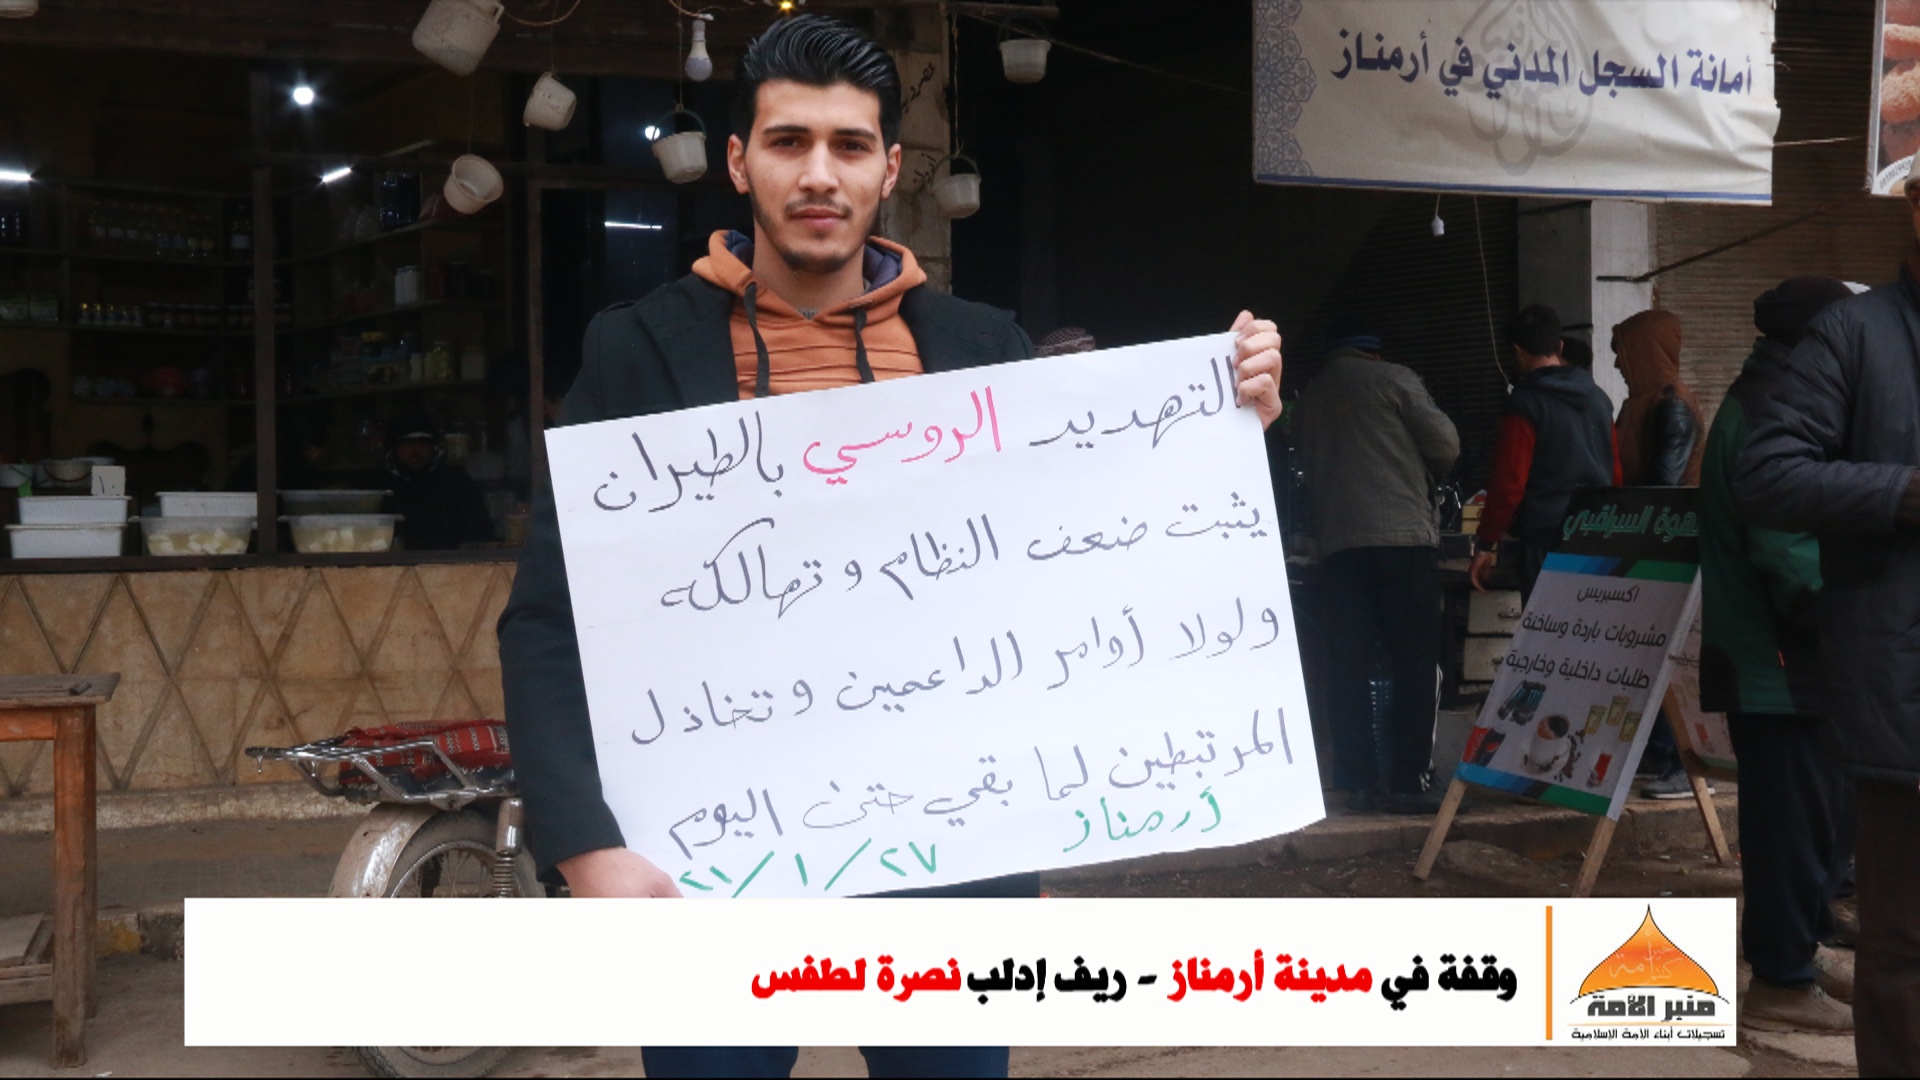 أمانة السجل المدني في أرمناز
التهديد الروسي بالطيران
يثبت ضعف النظام و تهالكه
ولولا أوامر الداعمين و تخاذل
المرتبطين لما بقي حتى اليوم
أرمناز ٢٧/١/٢١
قهوة السراقبي
اكسبريس
مشروبات باردة وساخنة
طلبات داخلية وخارجية
وقفة في مدينة أرمناز - ريف إدلب نصرة لطفس
منبر الأمة
تسجيلات أبناء الأمة الإسلامية